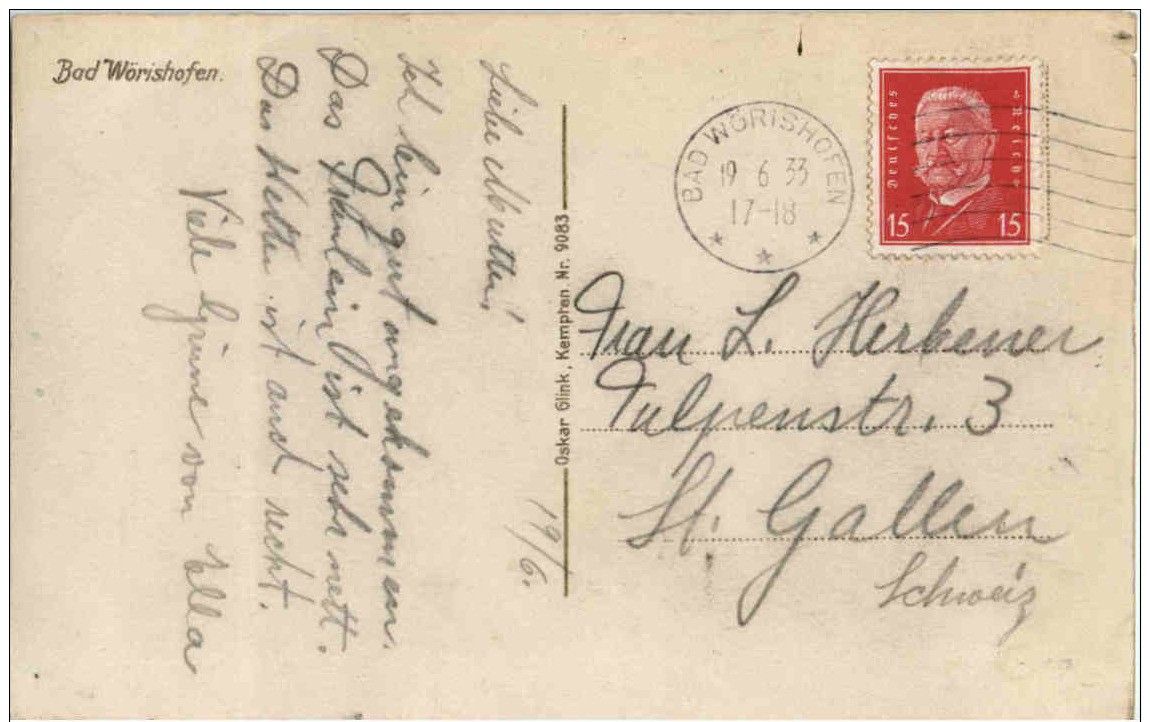 Bad Wörishofen.
19/6.
Liebe Mutter!
Ich bin gut angekommen.
Das Fräulein ist sehr nett.
Das Wetter ist auch recht.
Viele Grüsse von Ella
Oskar Glink, Kempten. Nr. 9083
BAD WÖRISHOFEN
19 6 33
17-18
Deutsches Reich
15 15
Frau L. Herbener
Tulpenstr. 3
St. Gallen
Schweiz